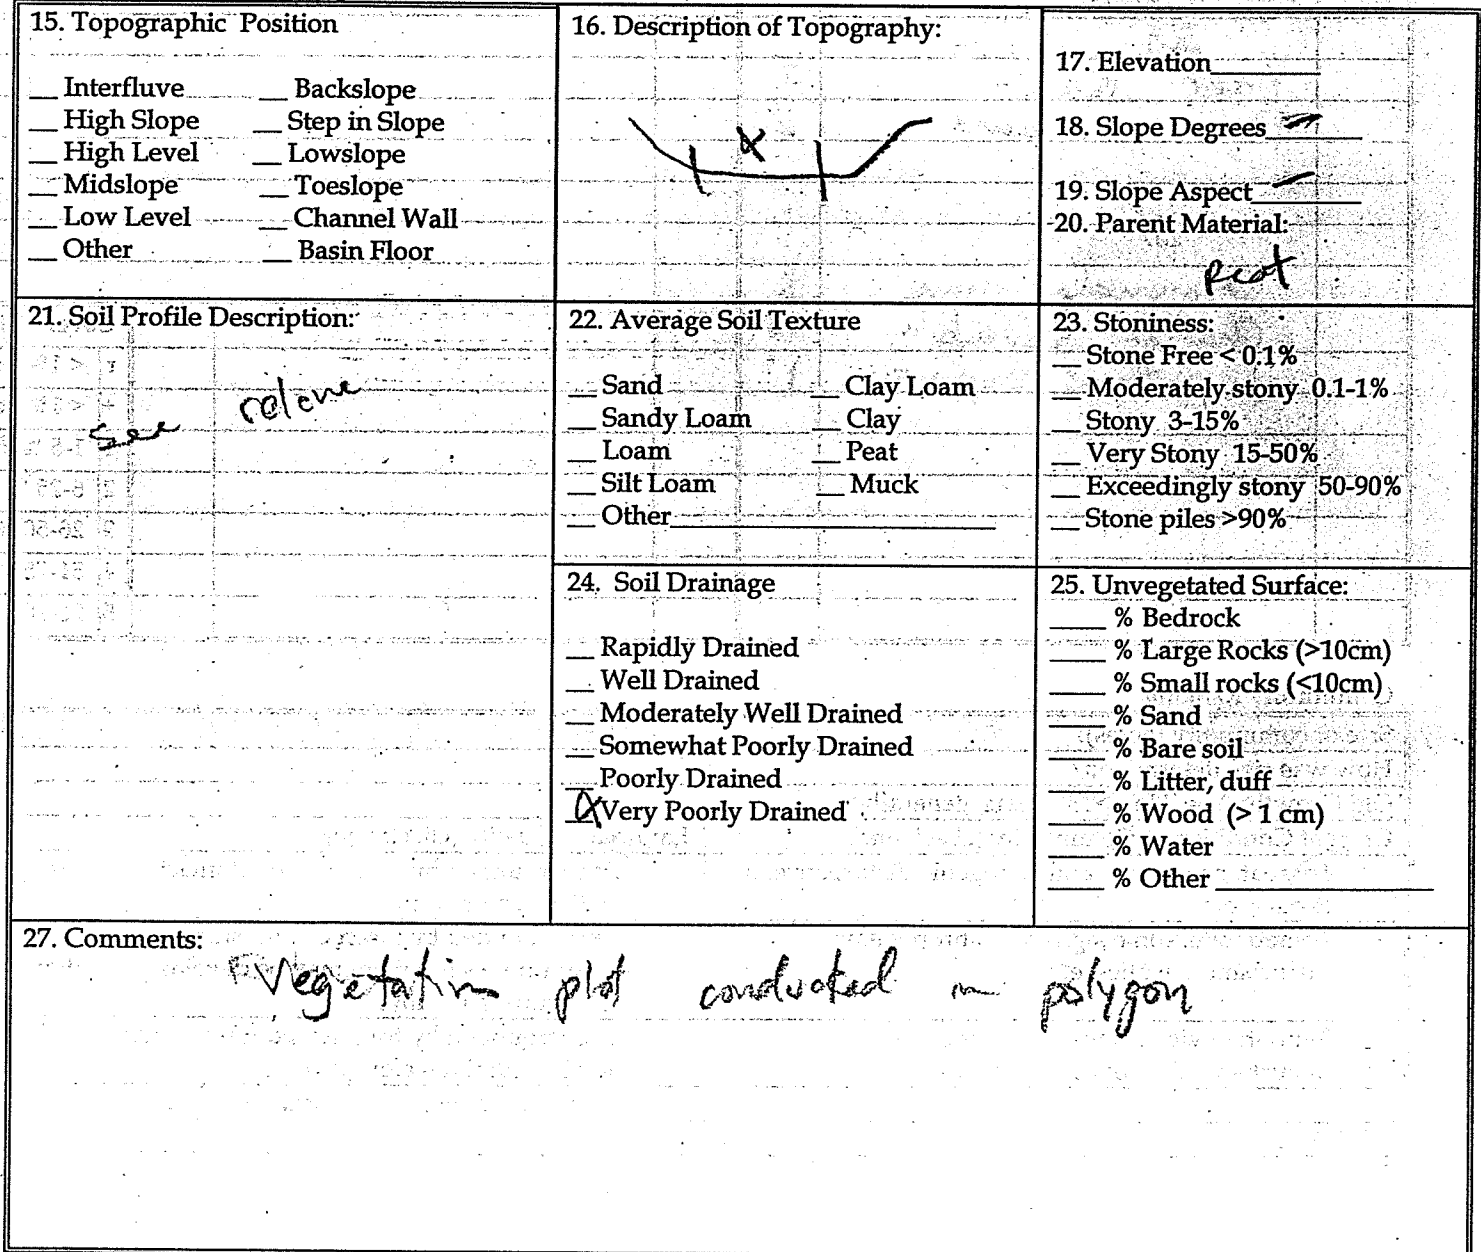 15. Topographic Position
__ Interfluve __ Backslope
__ High Slope __ Step in Slope
__ High Level __ Lowslope
__ Midslope __ Toeslope
__ Low Level __ Channel Wall
__ Other __ Basin Floor
16. Description of Topography:
X
17. Elevation________
18. Slope Degrees ________
19. Slope Aspect________
20. Parent Material:
peat
21. Soil Profile Description:
see relevé
22. Average Soil Texture
__ Sand __ Clay Loam
__ Sandy Loam __ Clay
__ Loam __ Peat
__ Silt Loam __ Muck
__ Other________________
23. Stoniness:
__ Stone Free < 0.1%
__ Moderately stony 0.1-1%
__ Stony 3-15%
__ Very Stony 15-50%
__ Exceedingly stony 50-90%
__ Stone piles >90%
24. Soil Drainage
__ Rapidly Drained
__ Well Drained
__ Moderately Well Drained
__ Somewhat Poorly Drained
__ Poorly Drained
X Very Poorly Drained
25. Unvegetated Surface:
____ % Bedrock
____ % Large Rocks (>10cm)
____ % Small rocks (<10cm)
____ % Sand
____ % Bare soil
____ % Litter, duff
____ % Wood (> 1 cm)
____ % Water
____ % Other ________________
27. Comments:
Vegetation plot conducted in polygon